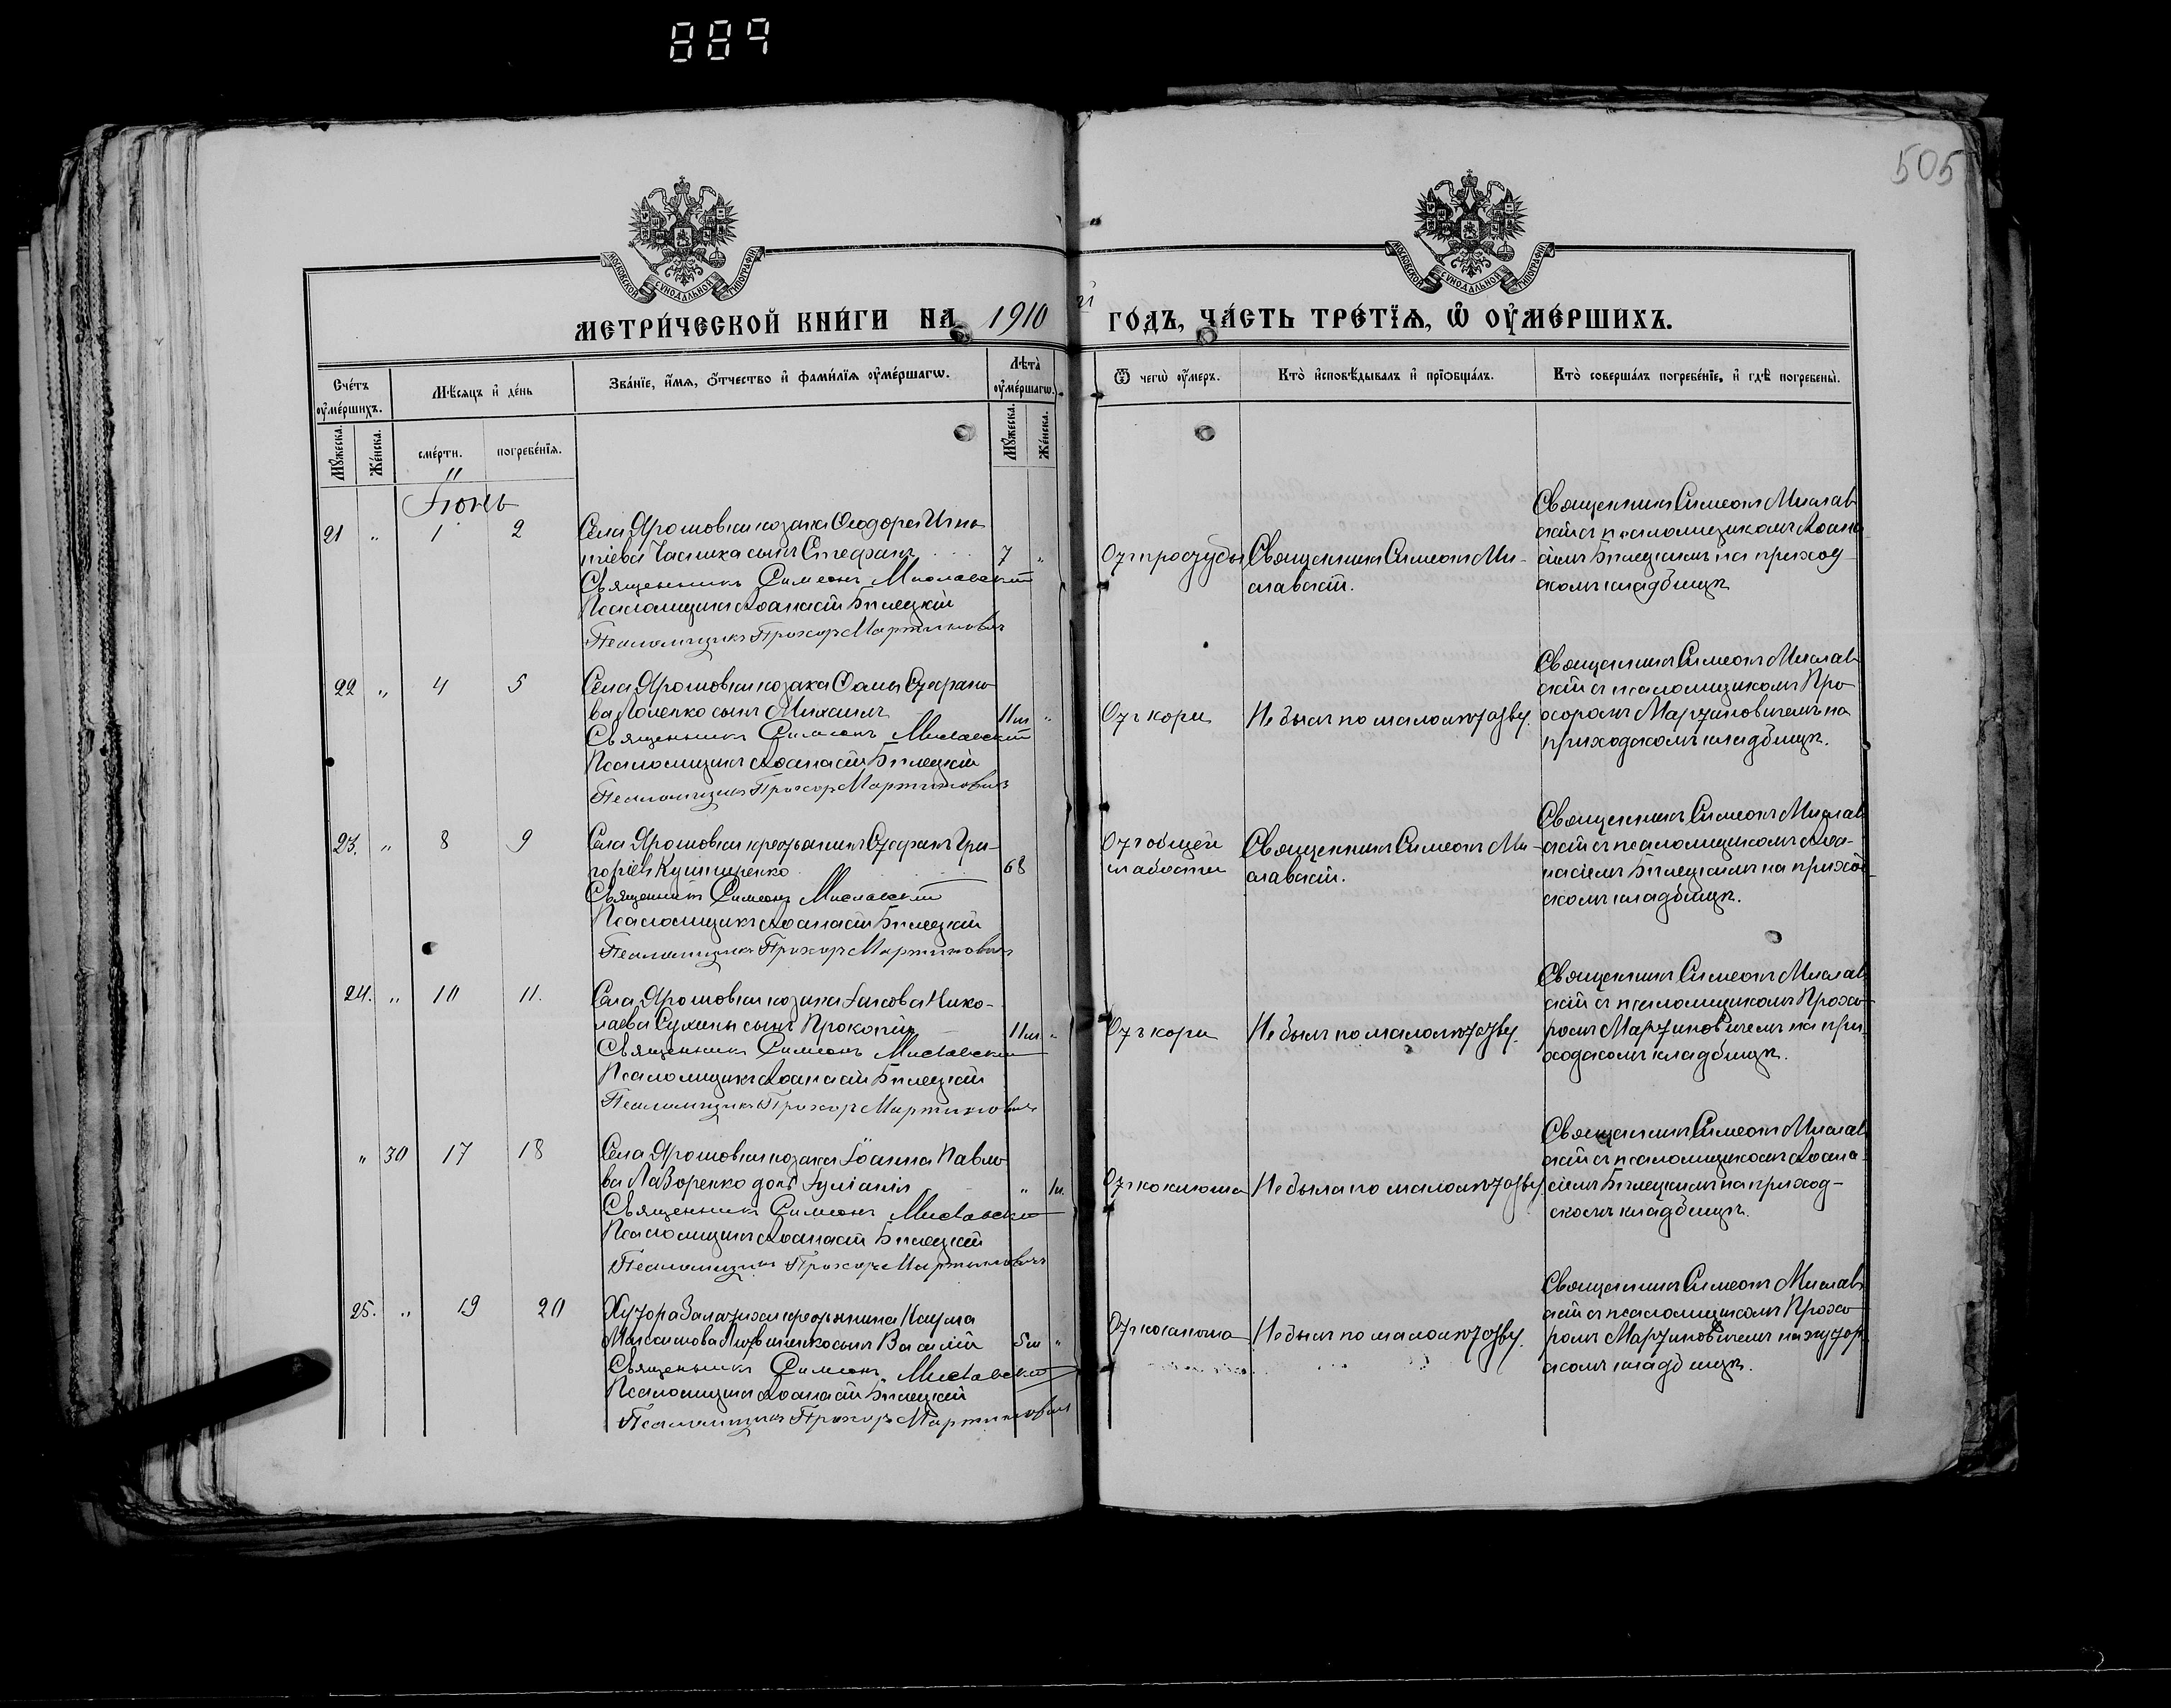 889
505
МОСКОВСКОЙ СѴНОДАЛЬНОЙ ТИПОГРАФІИ
МОСКОВСКОЙ СѴНОДАЛЬНОЙ ТИПОГРАФІИ
МЕТРИ́ЧЕСКОЙ КНИ́ГИ НА 1910 й ГО́ДЪ, ЧА́СТЬ ТРЕ́ТІѦ, Ѽ ОУ҆МЕ́РШИХЪ.
Сче́тъ оу҆ме́ршихъ.
Мѣ́сѧцъ и҆ де́нь
Зва́нїе, и҆́мѧ, ѻ҆́тчество и҆ фами́лїѧ оу҆ме́ршагѡ.
Лѣта̀ оу҆ме́ршагѡ.
Ѿ чегѡ̀ оу҆́меръ.
Кто̀ и҆сповѣ́дывалъ и҆ прїѡбща́лъ.
Кто̀ соверша́лъ погребе́нїе, и҆ гдѣ̀ погребены̀.
Мꙋ́жеска.
Же́нска.
сме́рти.
погребе́нїѧ.
Мꙋ́жеска.
Же́нска.
Іюнь
21 " 1 2
Села Ярошовки козака Ѳеодора Игна-
тіева Частика сынъ Стефанъ 7 "
Священникъ Симеонъ Миславскій
Псаломщикъ Аѳанасій Билецкій
Псаломщикъ Прохоръ Мартиновичъ
Отъ простуды
Священникъ Симеонъ Ми-
славскій.
Священникъ Симеонъ Мислав-
скій съ псаломщикомъ Аѳана-
сіемъ Билецкимъ на приход-
скомъ кладбищѣ
22 " 4 5
Села Ярошовки козака Ѳомы Стефано-
ва сынъ Михаилъ 11 м "
Священникъ Симеонъ Миславскій
Псаломщикъ Аѳанасій Билецкій
Псаломщикъ Прохоръ Мартиновичъ
Отъ кори
Не былъ по малолѣтству.
Священникъ Симеонъ Мислав-
скій съ псаломщикомъ Про-
хоромъ Мартиновичемъ на
приходскомъ кладбищѣ.
23. " 8 9
Села Ярошовки крестьянинъ Стефанъ Гри-
горіевъ Кушниренко 68
Священникъ Симеонъ Миславскій
Псаломщикъ Аѳанасій Билецкій
Псаломщикъ Прохоръ Мартиновичъ
Отъ общей
слабости
Священникъ Симеонъ Ми-
славскій.
Священникъ Симеонъ Мислав-
скій съ псаломщикомъ Аѳа-
насіемъ Билецкимъ на приход-
скомъ кладбищѣ.
24. " 10 11.
Села Ярошовки козака Іакова Нико-
лаева Сухины сынъ Прокопій 11 м "
Священникъ Симеонъ Миславскій
Псаломщикъ Аѳанасій Билецкій
Псаломщикъ Прохоръ Мартиновичъ
Отъ кори
Не былъ по малолѣтству.
Священникъ Симеонъ Мислав-
скій съ псаломщикомъ Прохо-
ромъ Мартиновичемъ на при-
ходскомъ кладбищѣ.
" 30 17 18
Села Ярошовки козака Іоанна Павло-
ва Лазоренко дочь Іуліанія " 1 м.
Священникъ Симеонъ Миславскій
Псаломщикъ Аѳанасій Билецкій
Псаломщикъ Прохоръ Мартиновичъ
Отъ коклюша
Не была по малолѣтству.
Священникъ Симеонъ Мислав-
скій съ псаломщикомъ Аѳана-
сіемъ Билецкимъ на приход-
скомъ кладбищѣ.
25. " 19 20
Хутора крестьянина Наума
Максимова сынъ Василій 5 м "
Священникъ Симеонъ Миславскій
Псаломщикъ Аѳанасій Билецкій
Псаломщикъ Прохоръ Мартиновичъ
Отъ коклюша
Не былъ по малолѣтству.
Священникъ Симеонъ Мислав-
скій съ псаломщикомъ Прохо-
ромъ Мартиновичемъ на хутор-
скомъ кладбищѣ.